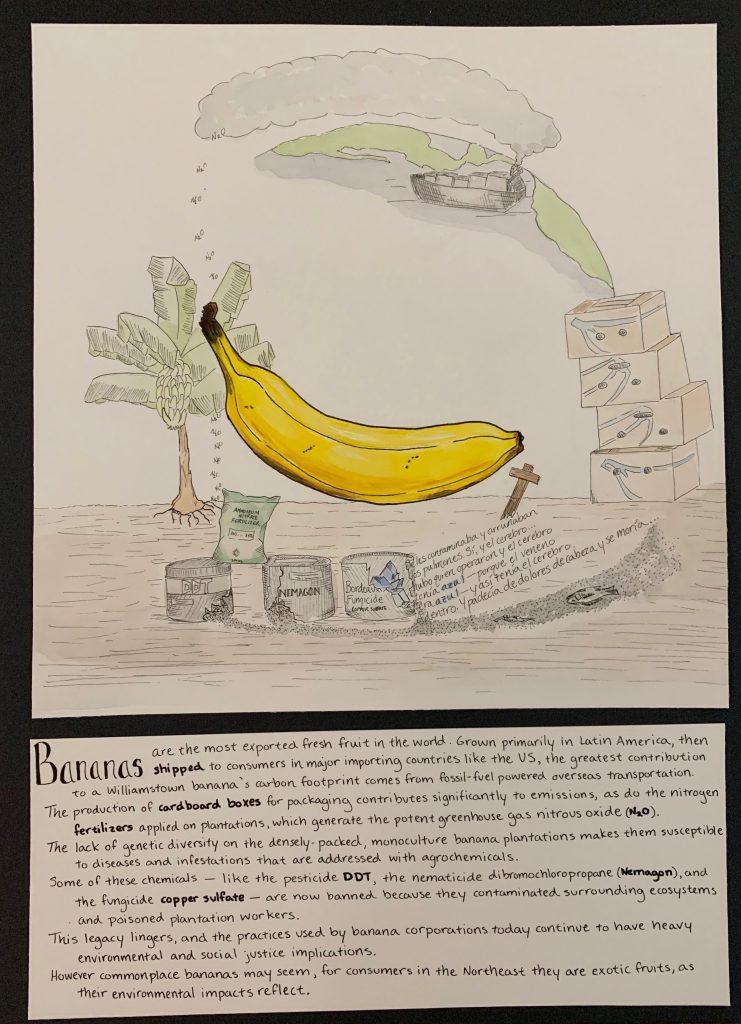 N₂O
N₂O
N₂O
N₂O
N₂O
N₂O
N₂O
N₂O
N₂O
N₂O
N₂O
N₂O
AMMONIUM
NITRATE
FERTILIZER
DDT
NEMAGON
Bordeaux
Fungicide
COPPER SULFATE
contaminaba y arruinaban
los pulmones. Sí, y el cerebro...
Hubo quien operaron y el cerebro
tenía azul — porque el veneno
era azul — y así tenía el cerebro
dentro. Y padecía de dolores de cabeza y se moría...
Bananas are the most exported fresh fruit in the world. Grown primarily in Latin America, then
shipped to consumers in major importing countries like the US, the greatest contribution
to a Williamstown banana's carbon footprint comes from fossil-fuel powered overseas transportation.
The production of cardboard boxes for packaging contributes significantly to emissions, as do the nitrogen
fertilizers applied on plantations, which generate the potent greenhouse gas nitrous oxide (N₂O).
The lack of genetic diversity on the densely-packed, monoculture banana plantations makes them susceptible
to diseases and infestations that are addressed with agrochemicals.
Some of these chemicals — like the pesticide DDT, the nematicide dibromochloropropane (Nemagon), and
the fungicide copper sulfate — are now banned because they contaminated surrounding ecosystems
and poisoned plantation workers.
This legacy lingers, and the practices used by banana corporations today continue to have heavy
environmental and social justice implications.
However commonplace bananas may seem, for consumers in the Northeast they are exotic fruits, as
their environmental impacts reflect.